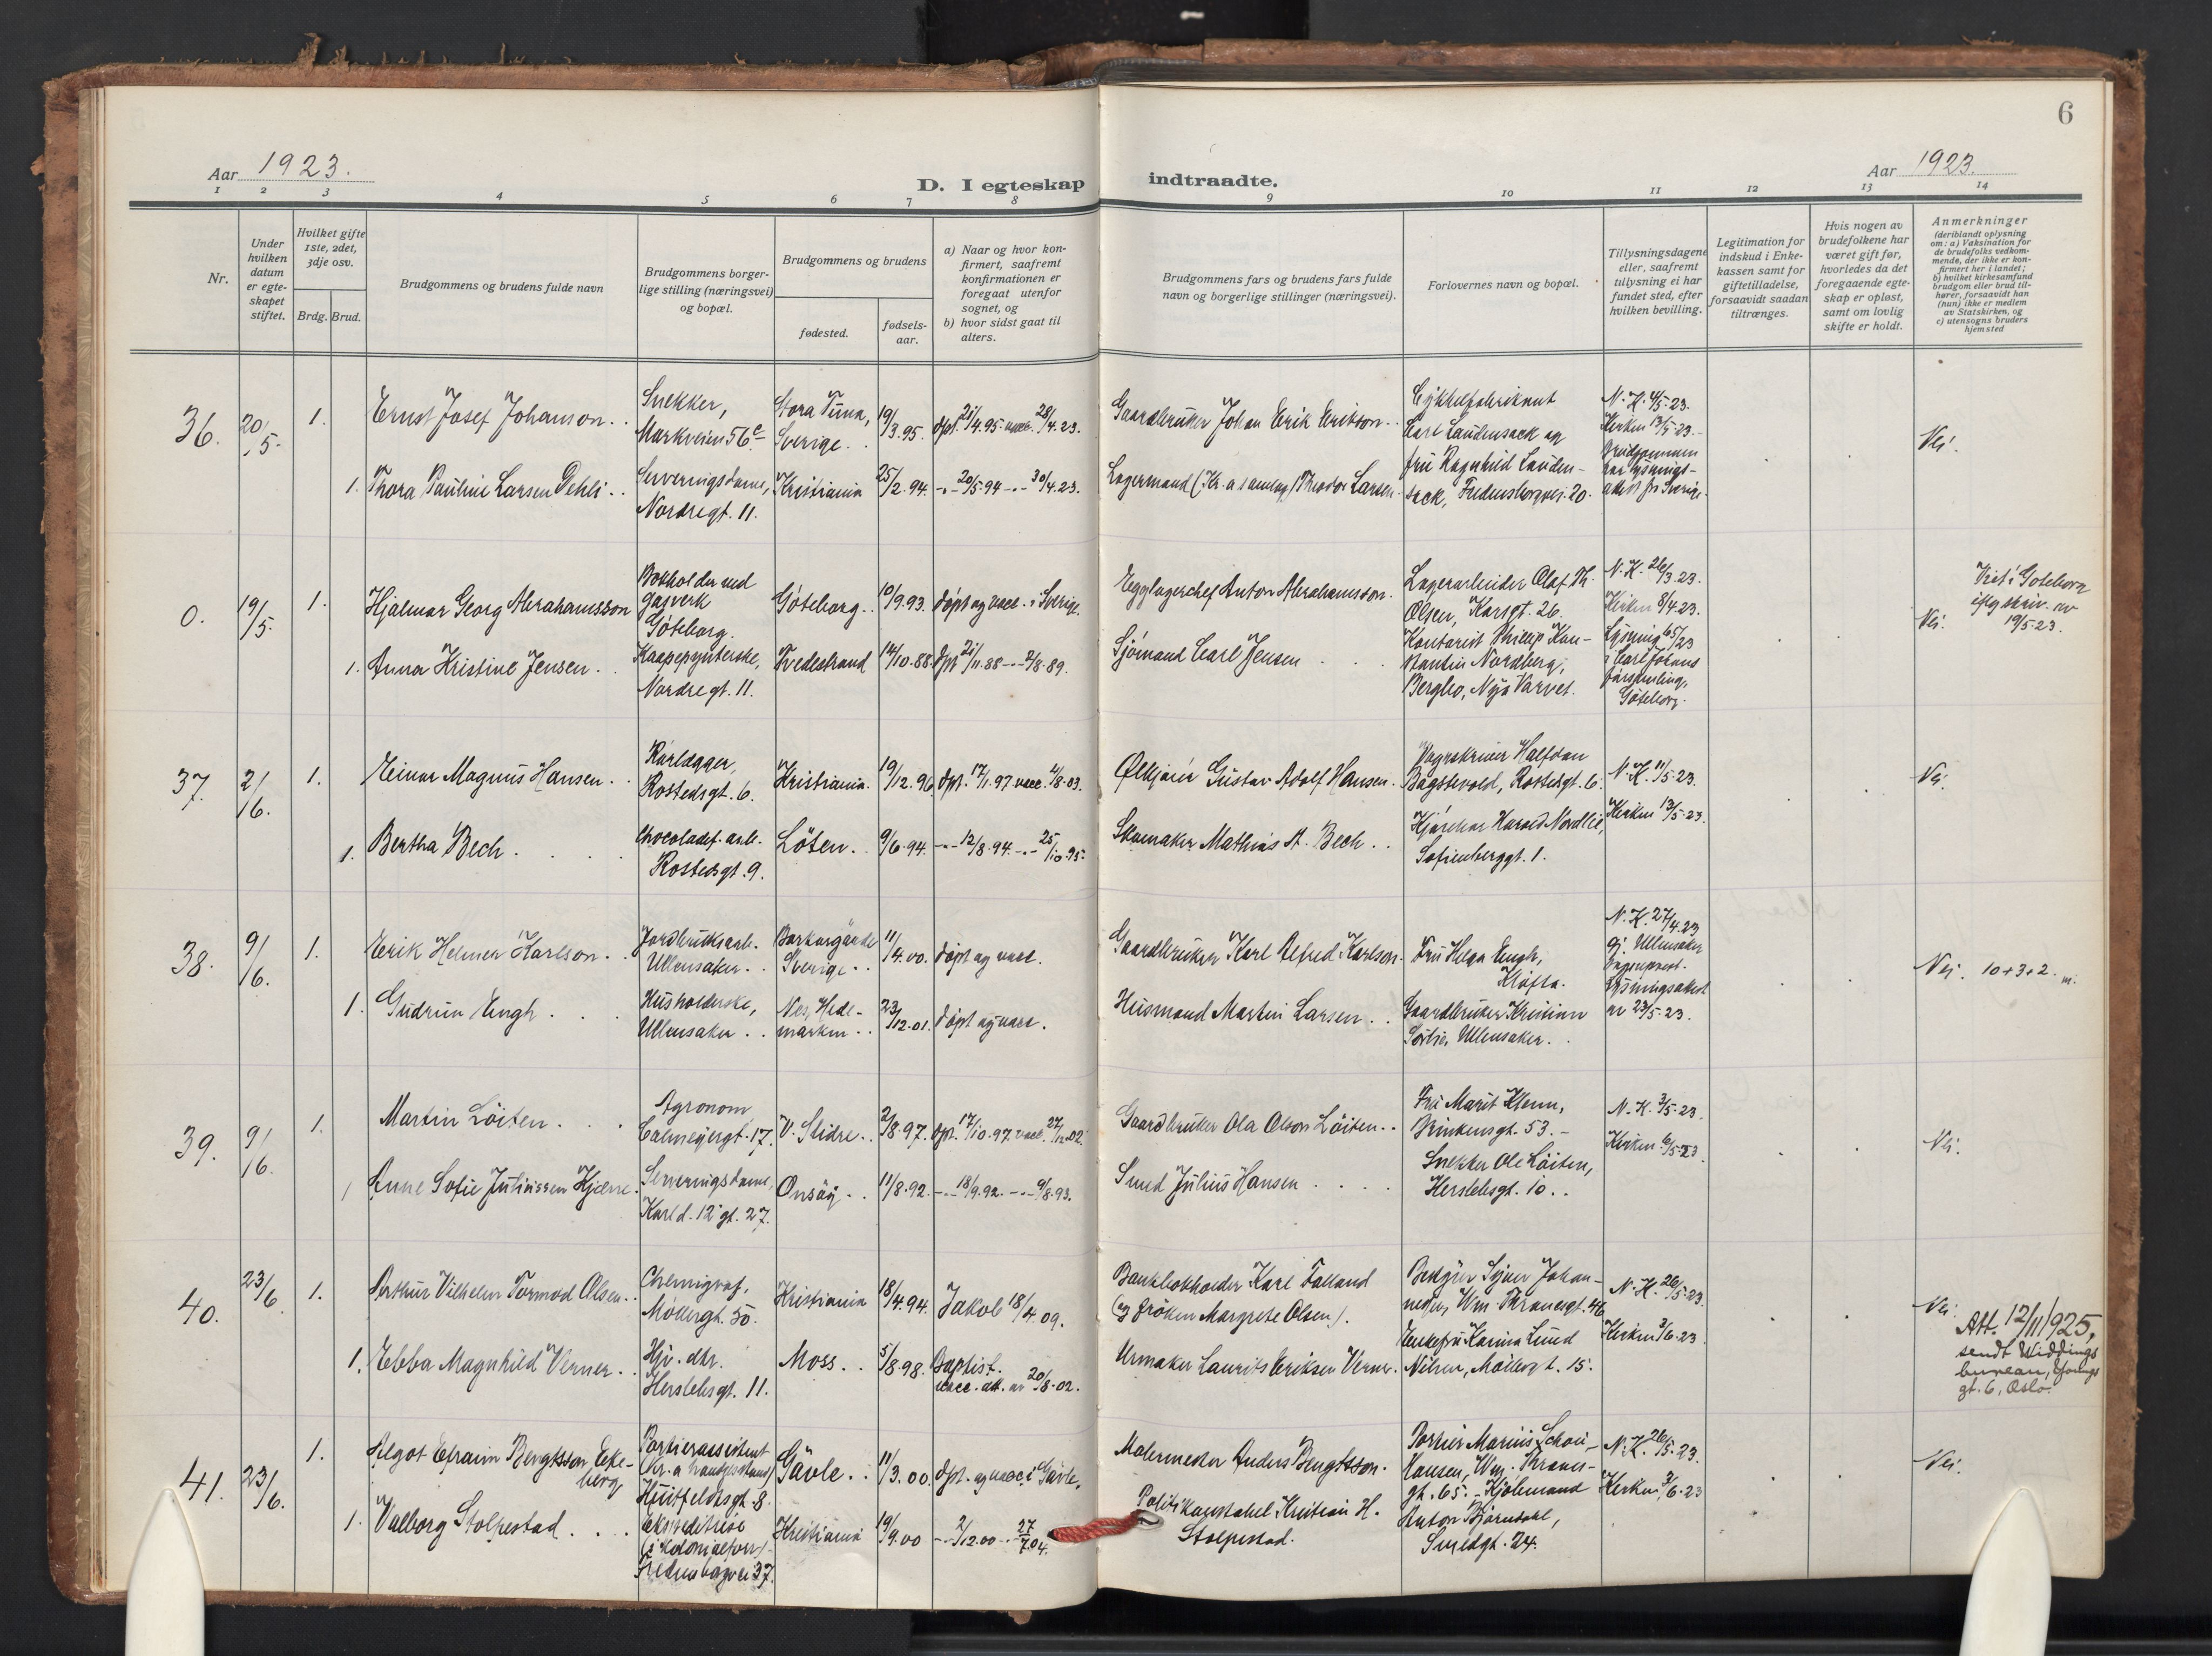 6
Aar 1923.
D. I egteskap indtraadte.
Aar 1923.
1 2 3 4 5 6 7 8 9 10 11 12 13 14
Nr.
Under hvilken datum er egte-skapet stiftet.
Hvilket gifte 1ste, 2det, 3dje osv.
Brdg. Brud.
Brudgommens og brudens fulde navn
Brudgommens borger-
lige stilling (næringsvei)
og bopæl.
Brudgommens og brudens
fødested.
fødsels-
aar.
a) Naar og hvor kon-
firmert, saafremt
konfirmationen er
foregaat utenfor
sognet, og
b) hvor sidst gaat til
alters.
Brudgommens fars og brudens fars fulde
navn og borgerlige stillinger (næringsvei).
Forlovernes navn og bopæl.
Tillysningsdagene
eller, saafremt
tillysning ei har
fundet sted, efter
hvilken bevilling.
Legitimation for
indskud i Enke-
kassen samt for
giftetilladelse,
forsaavidt saadan
tiltrænges.
Hvis nogen av
brudefolkene har
været gift før,
hvorledes da det
foregaaende egte-
skap er opløst,
samt om lovlig
skifte er holdt.
Anmerkninger
(deriblandt oplysning
om: a) Vaksination for
de brudefolks vedkom-
mende, der ikke er kon-
firmert her i landet;
b) hvilket kirkesamfund
brudgom eller brud til-
hører, forsaavidt han
(hun) ikke er medlem
av Statskirken, og
c) utensogns bruders
hjemsted
36. 20/5. 1. Ernst Josef Johanson.
Snekker,
Markveien 56c
Stora Tuna,
Sverige.
19/3.95. dpt. 21/4.95. vacc. 28/4.23.
Gaardbruker Johan Erik Erikson.
1. Thora Pauline Larsen Dehli
Serveringsdame,
Nordregt. 11.
Kristiania 25/2.94. -"- 20/5.94 -"- 30/4.23.
Lagermand (Kr.a samlag) Theodor Larsen.
Cykkelfabrikant
Carl Laudensack og
fru Ragnhild Lauden-
sack, Fredensborgvei. 20.
N.K. 4/5.23.
Kirken 13/5.23.
Brudgommen
har lysnings-
attest fra Sverige.
Nei.
0. 19/5. 1. Hjalmar Georg Abrahamsson
Bokholder ved
gasverk
Göteborg.
Göteborg. 10/9.93. døpt og vacc. i Sverige.
Anton Abrahamsson.
1. Anna Kristine Jensen.
Kaapepynterske,
Nordregt. 11.
Tvedestrand 14/10.88. dpt 21/11.88 -"- 2/8.89.
Sjömand Carl Jensen
Lagerarbeider Olaf Th.
Olsen, Korsgt. 26.
Kontorist Phillip Kon-
stantin Nordberg,
Bergbo, Nya Varvet.
N.K. 26/3.23.
Kirken 8/4.23.
Lysning 6/5/23
i Carl Johans
församling,
Göteborg.
Nei.
Viet i Göteborg
iflg skriv. av
19/5.23.
37. 2/6. 1. Einar Magnus Hansen.
Rørlægger,
Rostedsgt. 6.
Kristiania. 19/12.96. dpt. 17/1.97. vacc. 4/8.03.
Ølkjører Gustav Adolf Hansen.
1. Bertha Bech.
Chocoladef. arb.
Rostedsgt. 9.
Löten. 9/6.94. -"- 12/8.94. -"- 25/10.95.
Skomaker Mathias A. Bech.
Vognskriver Halfdan
Bagstevold, Rostedsgt. 6.
Kjørekar Harald Nordlie,
Sofienberggt. 1.
N.K. 11/5.23.
Kirken 13/5.23.
Nei.
38. 9/6. 1. Erik Helmer Karlson.
Jordbruksarb.
Ullensaker.
Sverige. 11/4.00. døpt og vacc.
Gaardbruker Karl Alfred Karlson.
1. Gudrun Engh.
Husholderske,
Ullensaker.
Nes, Hede-
marken. 23/12.01. døpt og vacc.
Husmand Martin Larsen.
Fru Helga Engh,
Kløfta.
Gaardbruker Kristian
Sörlie, Ullensaker.
N.K. 27/4.23
Ullensaker
Sogneprest.
Lysningsattest
av 23/5.23.
Nei. 10+3+2.
39. 9/6. 1. Martin Löiten.
Agronom
Calmeyergt. 17.
V. Slidre. 2/8.97. dpt. 17/10.97. vacc. 27/12.02.
Gaardbruker Ola Olson Löiten.
1 Anne Sofie Juliussen Hjerne.
Serveringsdame,
Karl d. 12' gt. 27.
Onsöy. 11/8.92. -"- 18/9.92. -"- 9/8.93.
Smed Julius Hansen
Fru Marit Klemm,
Brinkensgt. 53.
Snekker Ole Löiten,
Herslebsgt. 10.
N.K. 3/5.23.
Kirken 6/5.23.
Nei.
40. 23/6. 1. Arthur Vilhelm Tormod Olsen.
Chemigraf,
Møllergt. 50.
Kristiania 18/4.94. Jakob 18/4.09.
Bankbokholder Karl Falland
(og frøken Margrete Olsen).
1. Ebba Magnhild Verner.
Hj. dtr.
Herslebsgt. 11.
Moss. 5/8.98. Baptist.
vacc. att. av 20/8.02.
Urmaker Laurits Eriksen Verner.
Johan-
nesen, Wm. Thranesgt. 46
Enkefru Karina Lund
Nilsen, Møllergt. 15.
N.K. 26/5.23.
Kirken 3/6.23
Nei.
Att. 12/11 1925,
sendt Widdings
bureau, Youngs
gt. 6, Oslo.
41. 23/6. 1. Algot Efraim Bengtsson Eke-
berg
Portierassistent
Huitfeldtsgt. 8.
Gävle. 11/3.00. dpt. og vacc i Gävle.
Malermester Anders Bengtsson.
1. Valborg Stolpestad.
Ekspeditrise
(i kolonialforr.)
Fredensborgvei 37.
Kristiania 19/9.00 -"- 2/12.00 -"- 27/7.04.
Politikonstabel Kristian H.
Stolpestad.
Portier Marius Schou-
Hansen, Wm. Thranes-
gt. 65. - Kjølemand
Anton Bjørndahl,
Smedgt. 24.
N.K. 26/5.23.
Kirken 3/6.23
Nei.